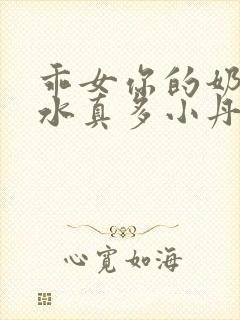 乖女你的奶
水真多小丹
心宽如海